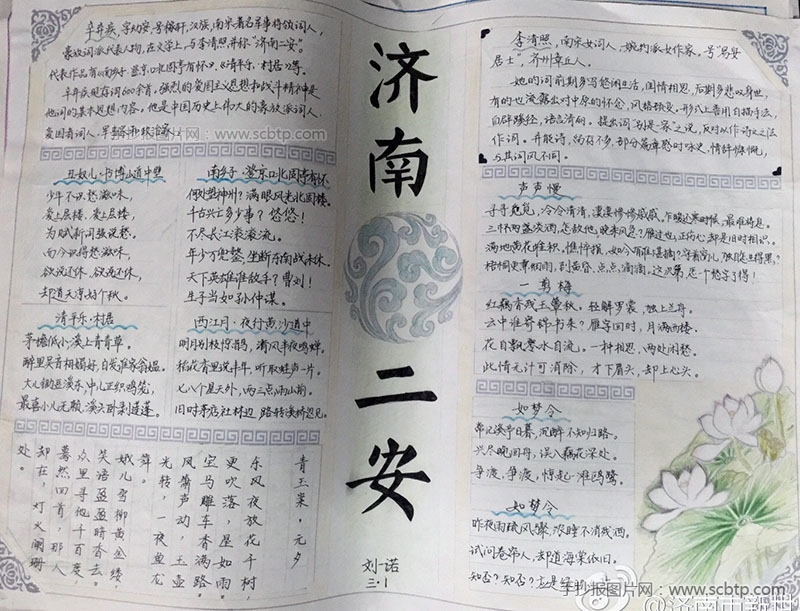 辛弃疾,字幼安,号稼轩,汉族,南宋著名军事将领词人,
豪放词派代表人物,在文学上,与李清照并称“济南二安”。
代表作品有《南乡子·登京口北固亭有怀》,《清平乐·村居》等。
辛弃疾现存词600余首,强烈的爱国主义思想和战斗精神是
他词的基本思想内容,他是中国历史上伟大的豪放派词人、
爱国者词人、军事家和政治家。
丑奴儿·书博山道中壁
少年不识愁滋味,
爱上层楼,爱上层楼,
为赋新词强说愁。
而今识得愁滋味,
欲说还休,欲说还休,
却道天凉好个秋。
南乡子·登京口北固亭有怀
何处望神州?满眼风光北固楼。
千古兴亡多少事?悠悠!
不尽长江滚滚流。
年少万兜鍪,坐断东南战未休。
天下英雄谁敌手?曹刘!
生子当如孙仲谋。
清平乐·村居
茅檐低小,溪上青青草。
醉里吴音相媚好,白发谁家翁媪。
大儿锄豆溪东,中儿正织鸡笼,
最喜小儿无赖,溪头卧剥莲蓬。
西江月·夜行黄沙道中
明月别枝惊鹊,清风半夜鸣蝉。
稻花香里说丰年,听取蛙声一片。
七八个星天外,两三点雨山前。
旧时茅店社林边,路转溪桥忽见。
青玉案·元夕
东风夜放花千树
更吹落,星如雨。
宝马雕车香满路。
凤箫声动,玉壶
光转,一夜鱼龙
舞。
蛾儿雪柳黄金缕
笑语盈盈暗香去。
众里寻他千百度
蓦然回首,那人
却在,灯火阑珊
处。
济南二安
刘一诺
三·1
李清照,南宋女词人,婉约派女作家,号“易安
居士”,齐州章丘人。
她的词前期多写悠闲生活,闺情相思,后期多悲叹身世,
有的也流露出对中原的怀念,风格婉变。形式上善用白描手法,
自辟蹊径,语言清丽。提出词“别是一家”之说,反对以作诗之法
作词。并能诗,尚存不多,部分篇章感时咏史,情辞慷慨,
与其词风不同。
声声慢
寻寻觅觅,冷冷清清,凄凄惨惨戚戚。乍暖还寒时候,最难将息。
三杯两盏淡酒,怎敌他,晚来风急?雁过也,正伤心,却是旧时相识。
满地黄花堆积,憔悴损,如今有谁堪摘?守着窗儿,独自怎生得黑?
梧桐更兼细雨,到黄昏、点点滴滴,这次第,怎一个愁字了得!
一剪梅
红藕香残玉簟秋。轻解罗裳,独上兰舟。
云中谁寄锦书来?雁字回时,月满西楼。
花自飘零水自流。一种相思,两处闲愁。
此情无计可消除,才下眉头,却上心头。
如梦令
常记溪亭日暮,沉醉不知归路。
兴尽晚回舟,误入藕花深处。
争渡,争渡,惊起一滩鸥鹭。
如梦令
昨夜雨疏风骤,浓睡不消残酒。
试问卷帘人,却道海棠依旧。
知否?知否?应是绿肥
手抄报图片网:www.scbtp.com